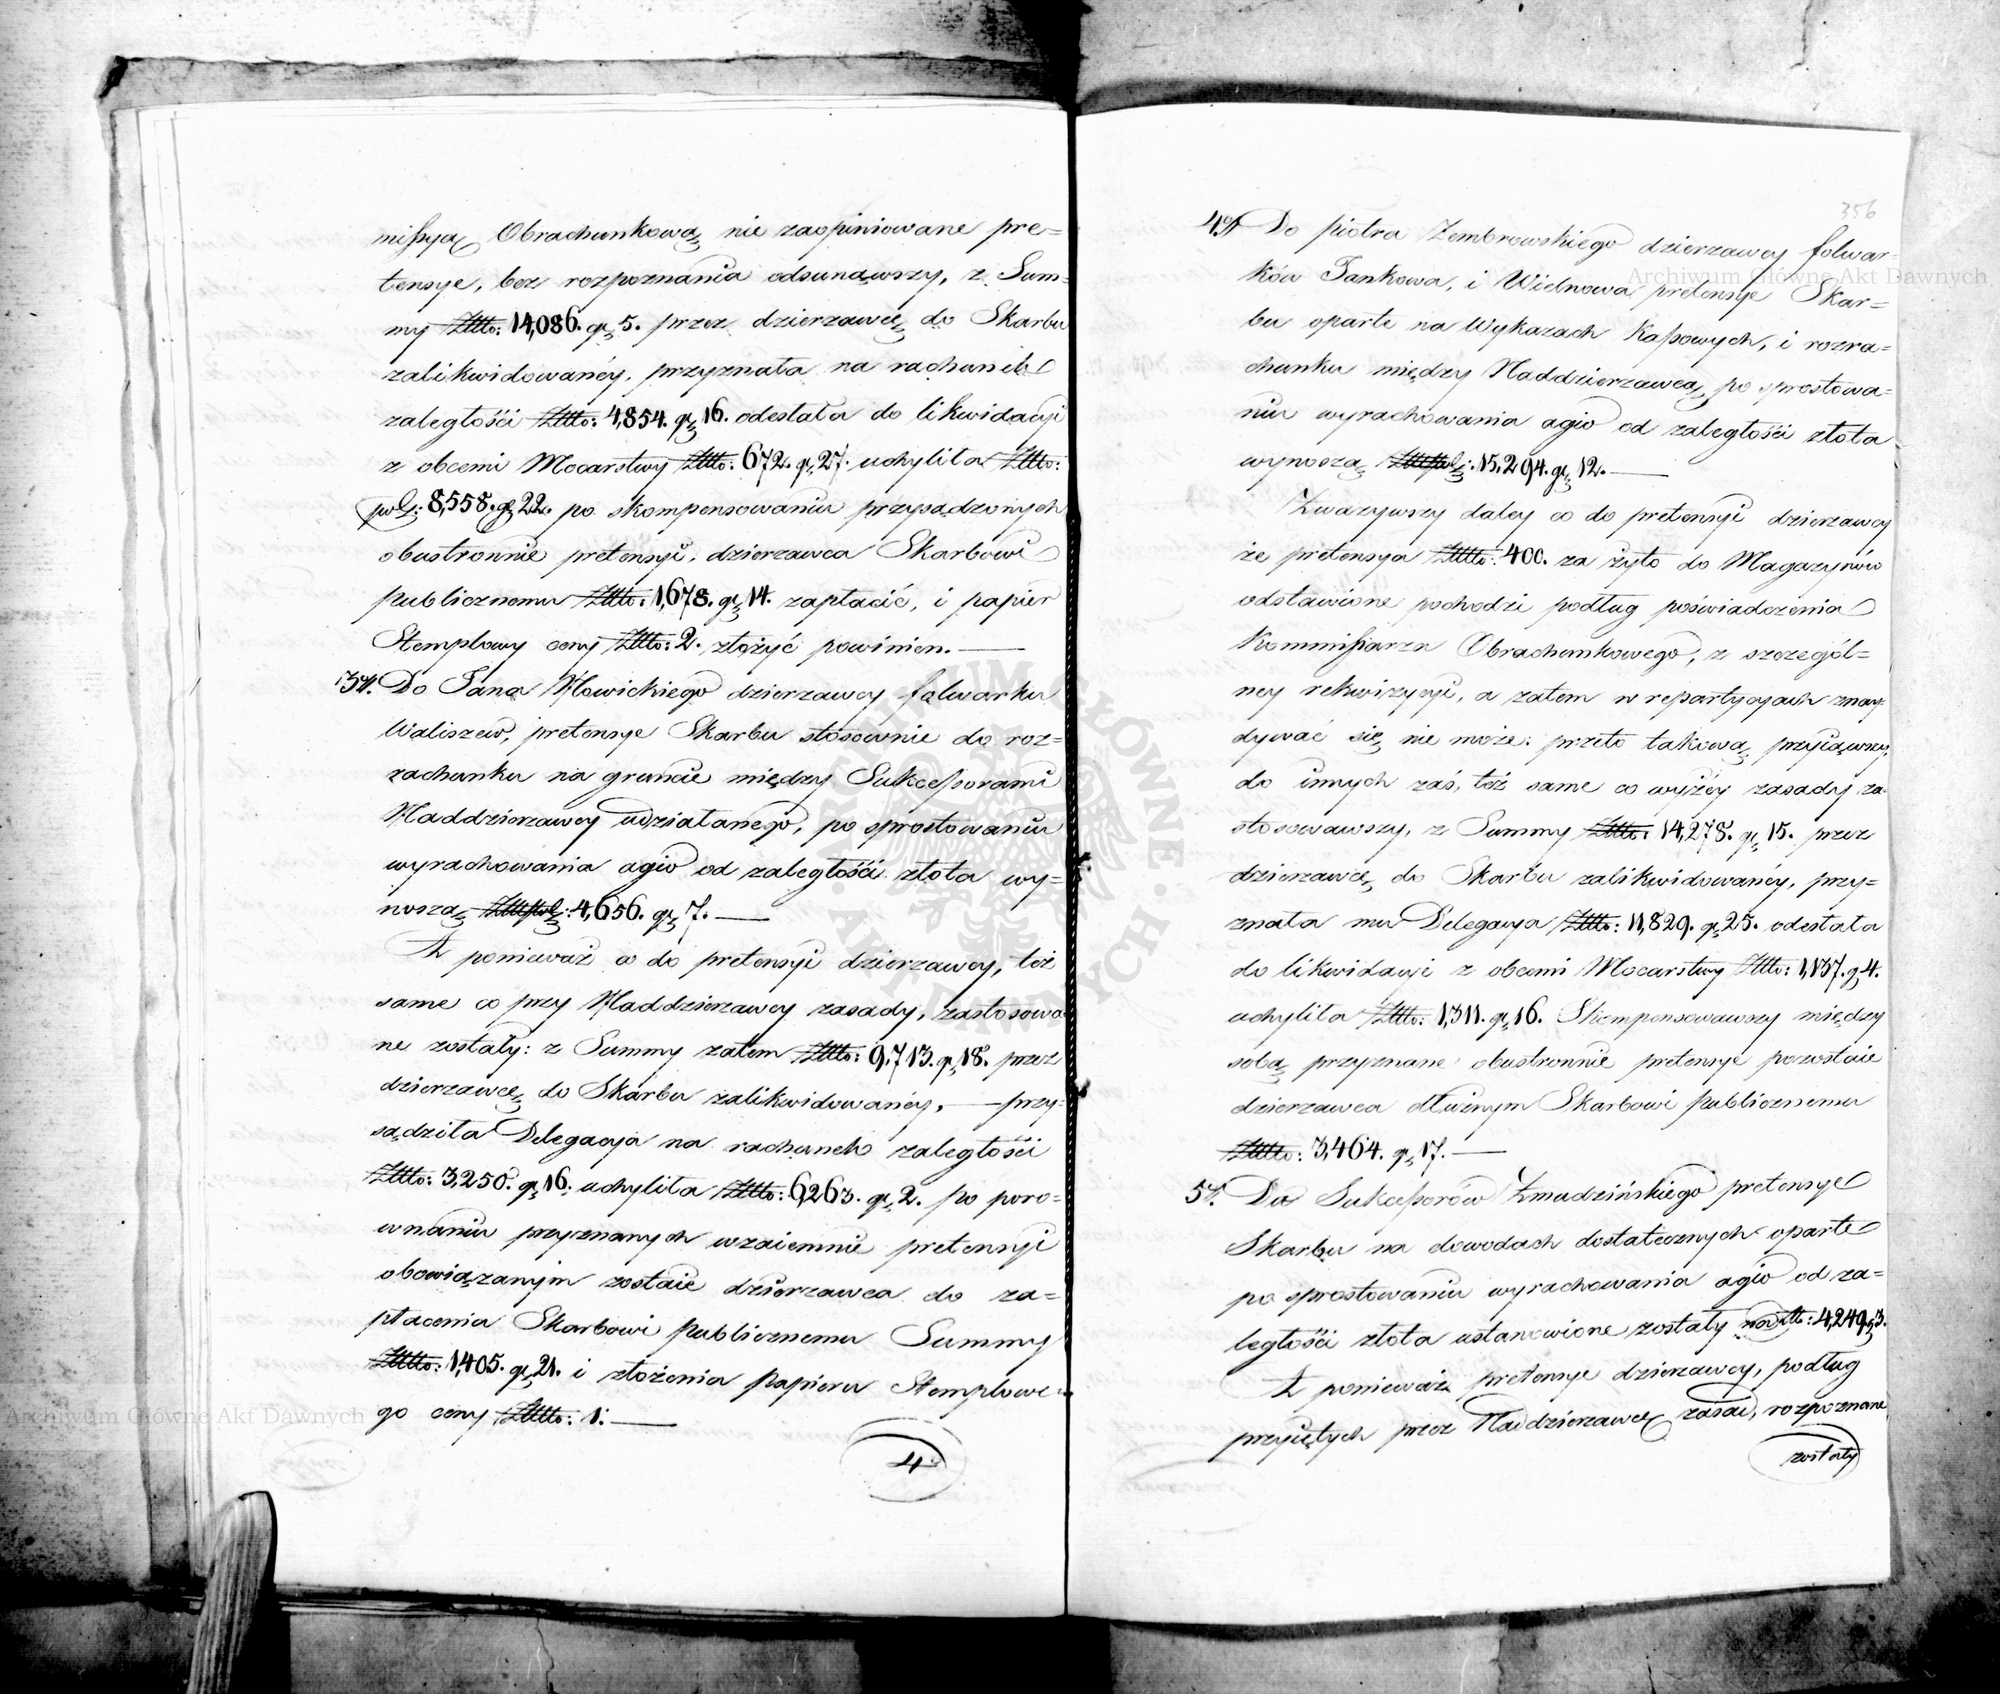 missyą Obrachunkową nie zaopiniowane pre=
tensye, bez rozpoznania odsunąwszy, z Sum=
my Złtto: 14,086. gr. 5. przez dzierzawcę do Skarbu
zalikwidowanéy, przyznała na rachunek
zaległości Złtto: 4,854. gr. 16. odesłała do likwidacyi
z obcemi Mocarstwy Złtto: 672. gr. 27. uchyliła Złtto:
pols: 8,558. gr. 22. po skompensowaniu przysądzonych
obustronnie pretensyi, dzierzawca Skarbowi
publicznemu Złtto: 1,678. gr. 14. zapłacić, i papier
Stemplowy ceny Złtto: 2. złożyć powinien. —
3. Do Jana Nowickiego dzierzawcy folwarku
Waliszew, pretensye Skarbu stosownie do roz=
rachunku na gruncie między Sukcessorami
Naddzierzawcy udziałanego, po sprostowaniu
wyrachowania agio od zaległości złota wy=
noszą Złtt pol: 4,656. gr. 7. —
A ponieważ co do pretensyi dzierzawcy, też
same co przy Naddzierzawcy zasady, zastosowa
ne zostały: z Summy zatem Złtto: 9,713. gr. 18. przez
dzierzawcę do Skarbu zalikwidowanéy, — przy=
sądziła Delegacya na rachunek zaległości
Złtto: 3,250. gr. 16. uchyliła Złtto: 6,263. gr. 2. po poro=
wnaniu przyznanych wzaiemnie pretensyi
obowiązanym zostaie dzierzawca do za=
płacenia Skarbowi publicznemu Summy
Złtto: 1,405. gr. 21. i złożenia papieru Stemplowe=
go ceny Złtto: 1. —
4.
356
4. Do piotra Zembrowskiego dzierzawcy folwar=
ków Jankowa, i Wielnowa pretensye Skar=
bu oparte na Wykazach Kassowych, i rozra=
chunku między Naddzierzawcą, po sprostowa=
niu wyrachowania agio od zaległości złota
wynoszą Złtt pol: 15,294. gr. 12. —
Zwazywszy daley co do pretensyi dzierzawcy
że pretensya Złtto: 400. za żyto do Magazynów
odstawione pochodzi podług poświadczenia
Kommissarza Obrachunkowego, z szczegól=
ney rekwizycyi, a zatem w repartycyach znay
dywać się nie może: przeto takową przyiąwszy,
do innych zaś, też same co wyżéy zasady za=
stosowawszy, z Summy Złtto: 14,278. gr. 15. przez
dzierzawcę do Skarbu zalikwidowaney, przy=
znała mu Delegacya Złtto: 11,829. gr. 25. odesłała
do likwidacyi z obcemi Mocarstwy Złtto: 1,137. gr. 4.
uchyliła Złtto: 1,311. gr. 16. Skompensowawszy między
sobą przyznane obustronnie pretensye pozostaie
dzierzawca dłużnym Skarbowi publicznemu
Złtto: 3,464. gr. 17. —
5. Do Sukcessorów Żmudzińskiego pretensye
Skarbu na dowodach dostatecznych oparte
po sprostowaniu wyrachowania agio od za=
ległości złota ustanowione zostały na Złtto: 4,249. gr. 3.
A ponieważ pretensye dzierzawcy, podług
przyiętych przez Naddzierzawcę zasad, rozpoznane
zostały
Archiwum Główne Akt Dawnych
Archiwum Główne Akt Dawnych
ARCHIWUM GŁÓWNE AKT DAWNYCH